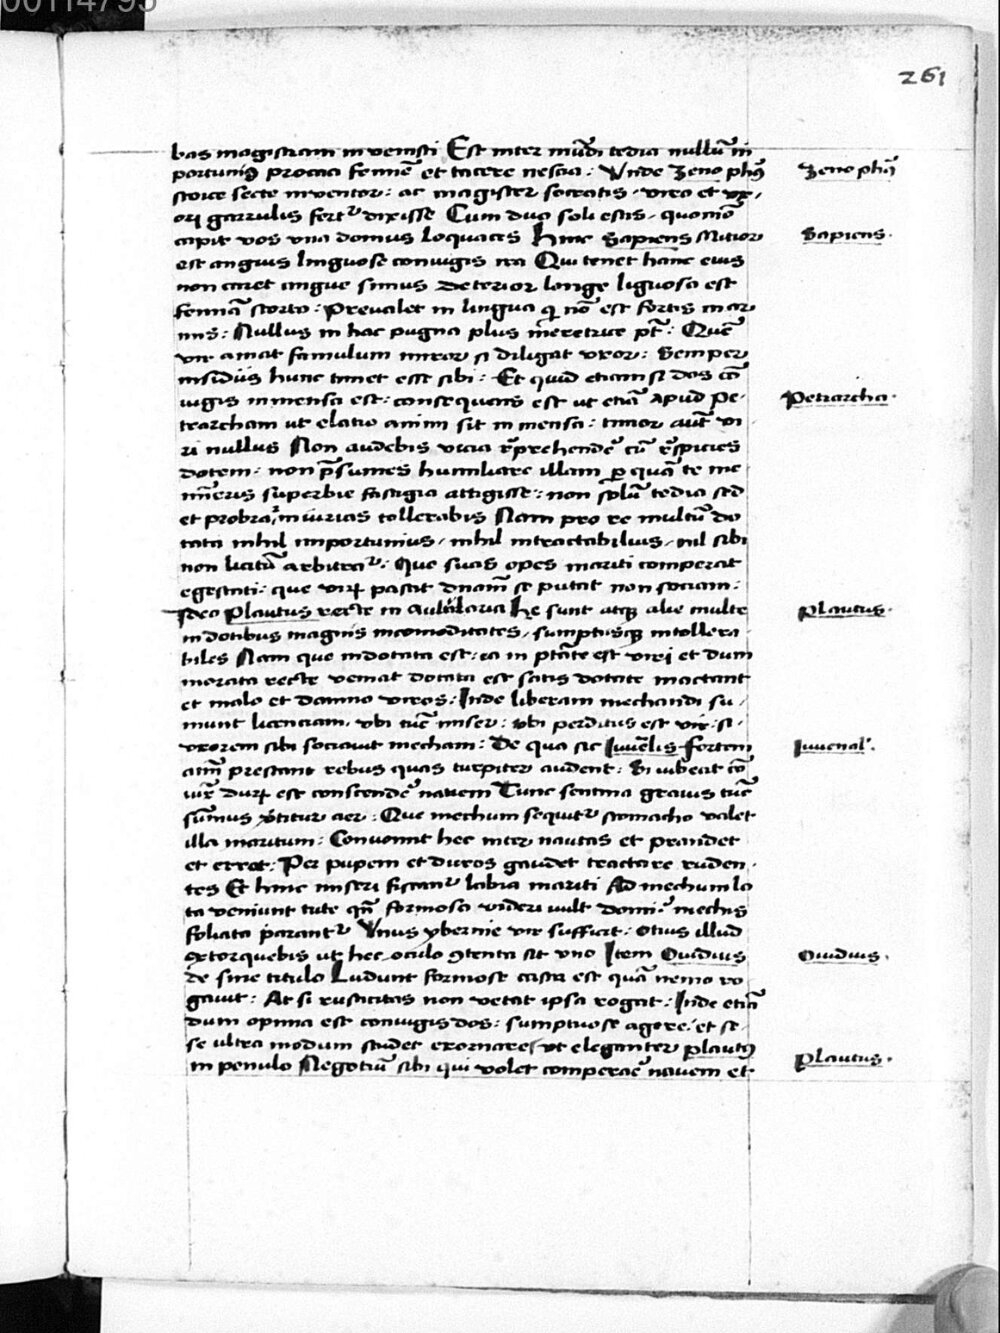 00114795
261
bas magistram invenisti Est inter mūdi tedia nullū in
portuniꝯ procaci femīe et tacere nescia: Unde Zeno phꝯ
Zeno phꝯ
stoice secte inventor: ac magister socratis. viro et ux.
ori garrulis fertʳ dixisse Cum duo soli estis. quomō
capit vos una domus loquaces Hinc Sapiens Mitior
Sapiens.
est anguis linguose coniugis ira Qui tenet hanc eius
non caret angue sinus Deterior longe liguosa est
femīa scorto: Prevalet in lingua q nō est fortis in ar
mis: Nullus in hac pugna plus meretrice pt: Quē
vir amat famulum miror si diligat uxor: Semper
insidiis hunc timet esse sibi: Et quid etiam si dos cō
iugis inmensa est: consequens est ut etiā apud Pe
Petrarcha.
trarcham ut elatio animi sit inmensa: timor aut vi
ri nullus Non audebis vicia rp̄rehendē cū rs̄picies
dotem: non p̄sumes humiliare illam ꝑ quā te me
mīeris superbie fastigia attigisse: non solū tedia sed
et probra, iniurias tollerabis Nam pro re multū do
tata nihil importunius, nihil intractabilius, nil sibi
non licitū arbitraʳ: Que suas opes mariti comperat
egestati: que virū pascit dnam se putat non sociam:
Ideo Plautus recte in Aulularia He sunt atqꝫ alie multe
Plautus.
in dotibus magnis incomoditates, sumptusqꝫ intollera
biles Nam que indotata est: ea in ptāte est viri et dum
morata recte veniat dotata est satis dotate mactant
et malo et damno viros: Inde liberam mechandi su
munt licenciam. ubi tūc miser: ubi perditus est vir: si
uxorem sibi sociavit mecham: De qua sic Iuvēlis fortem
Iuvenal.
aīm prestant rebus quas turpiter audent: Si iubeat cō
iux durū est conscendē navem Tunc sentina gravis tūc
sūmus vertitur aer: Que mechum sequitʳ stomacho valet
illa maritum: Convomit hec inter nautas et prandet
et errat: Per pupem et duros gaudet tractare ruden
tes Et hinc miseri fiscanʳ labia mariti Ad mechum lo
ta veniunt cute qn̄ formosa videri vult domi: mechis
foliata parantʳ Unus yberine vir sufficit: otius illud
extorquebis ut hec oculo ꝯtenta sit uno Item Ovidius
Ovidius.
de sine titulo Ludunt formose casta est quā nemo ro
gavit: At si rusticitas non vetat ipsa rogat: Inde etiā
dum opima est coniugis dos: sumptuose agere: et se
se ultra modum studet exornare, ut eleganter plautꝯ
in penulo Negotiū sibi qui volet comperare navem et
Plautus.